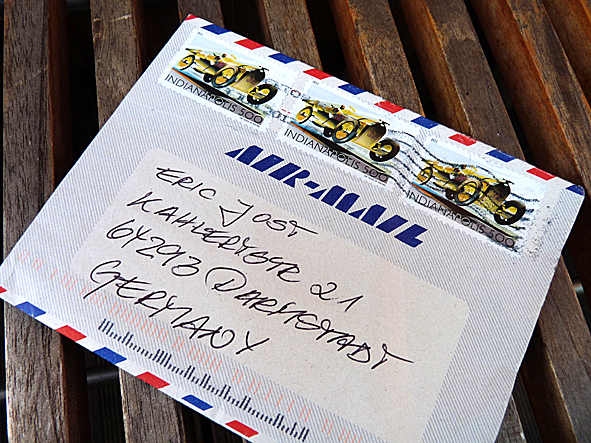 INDIANAPOLIS 500
INDIANAPOLIS 500
INDIANAPOLIS 500
AIR-MAIL
ERIC JOST
21
64293 DARMSTADT
GERMANY